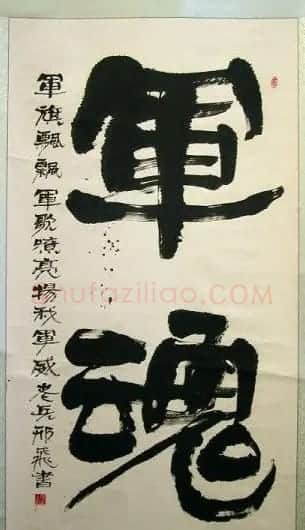 軍魂
軍旗飄飄軍歌嘹亮揚我軍威老兵邢飛書
shufaziliao.COM